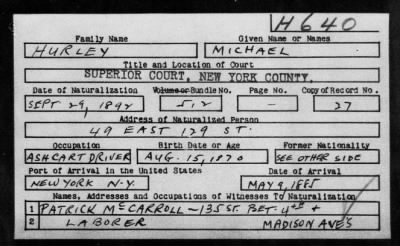 H640
Family Name Given Name or Names
HURLEY MICHAEL
Title and Location of Court
SUPERIOR COURT, NEW YORK COUNTY.
Date of Naturalization Volume or Bundle No. Page No. Copy of Record No.
SEPT 29, 1892 512 - 27
Address of Naturalized Person
49 EAST 129 ST.
Occupation Birth Date or Age Former Nationality
ASHCART DRIVER AUG. 15, 1870 SEE OTHER SIDE
Port of Arrival in the United States Date of Arrival
NEW YORK N.Y. MAY 9, 1885
Names, Addresses and Occupations of Witnesses To Naturalization
1 PATRICK McCARROLL - 135 ST. BET. 4TH +
2 LABORER MADISON AVE'S